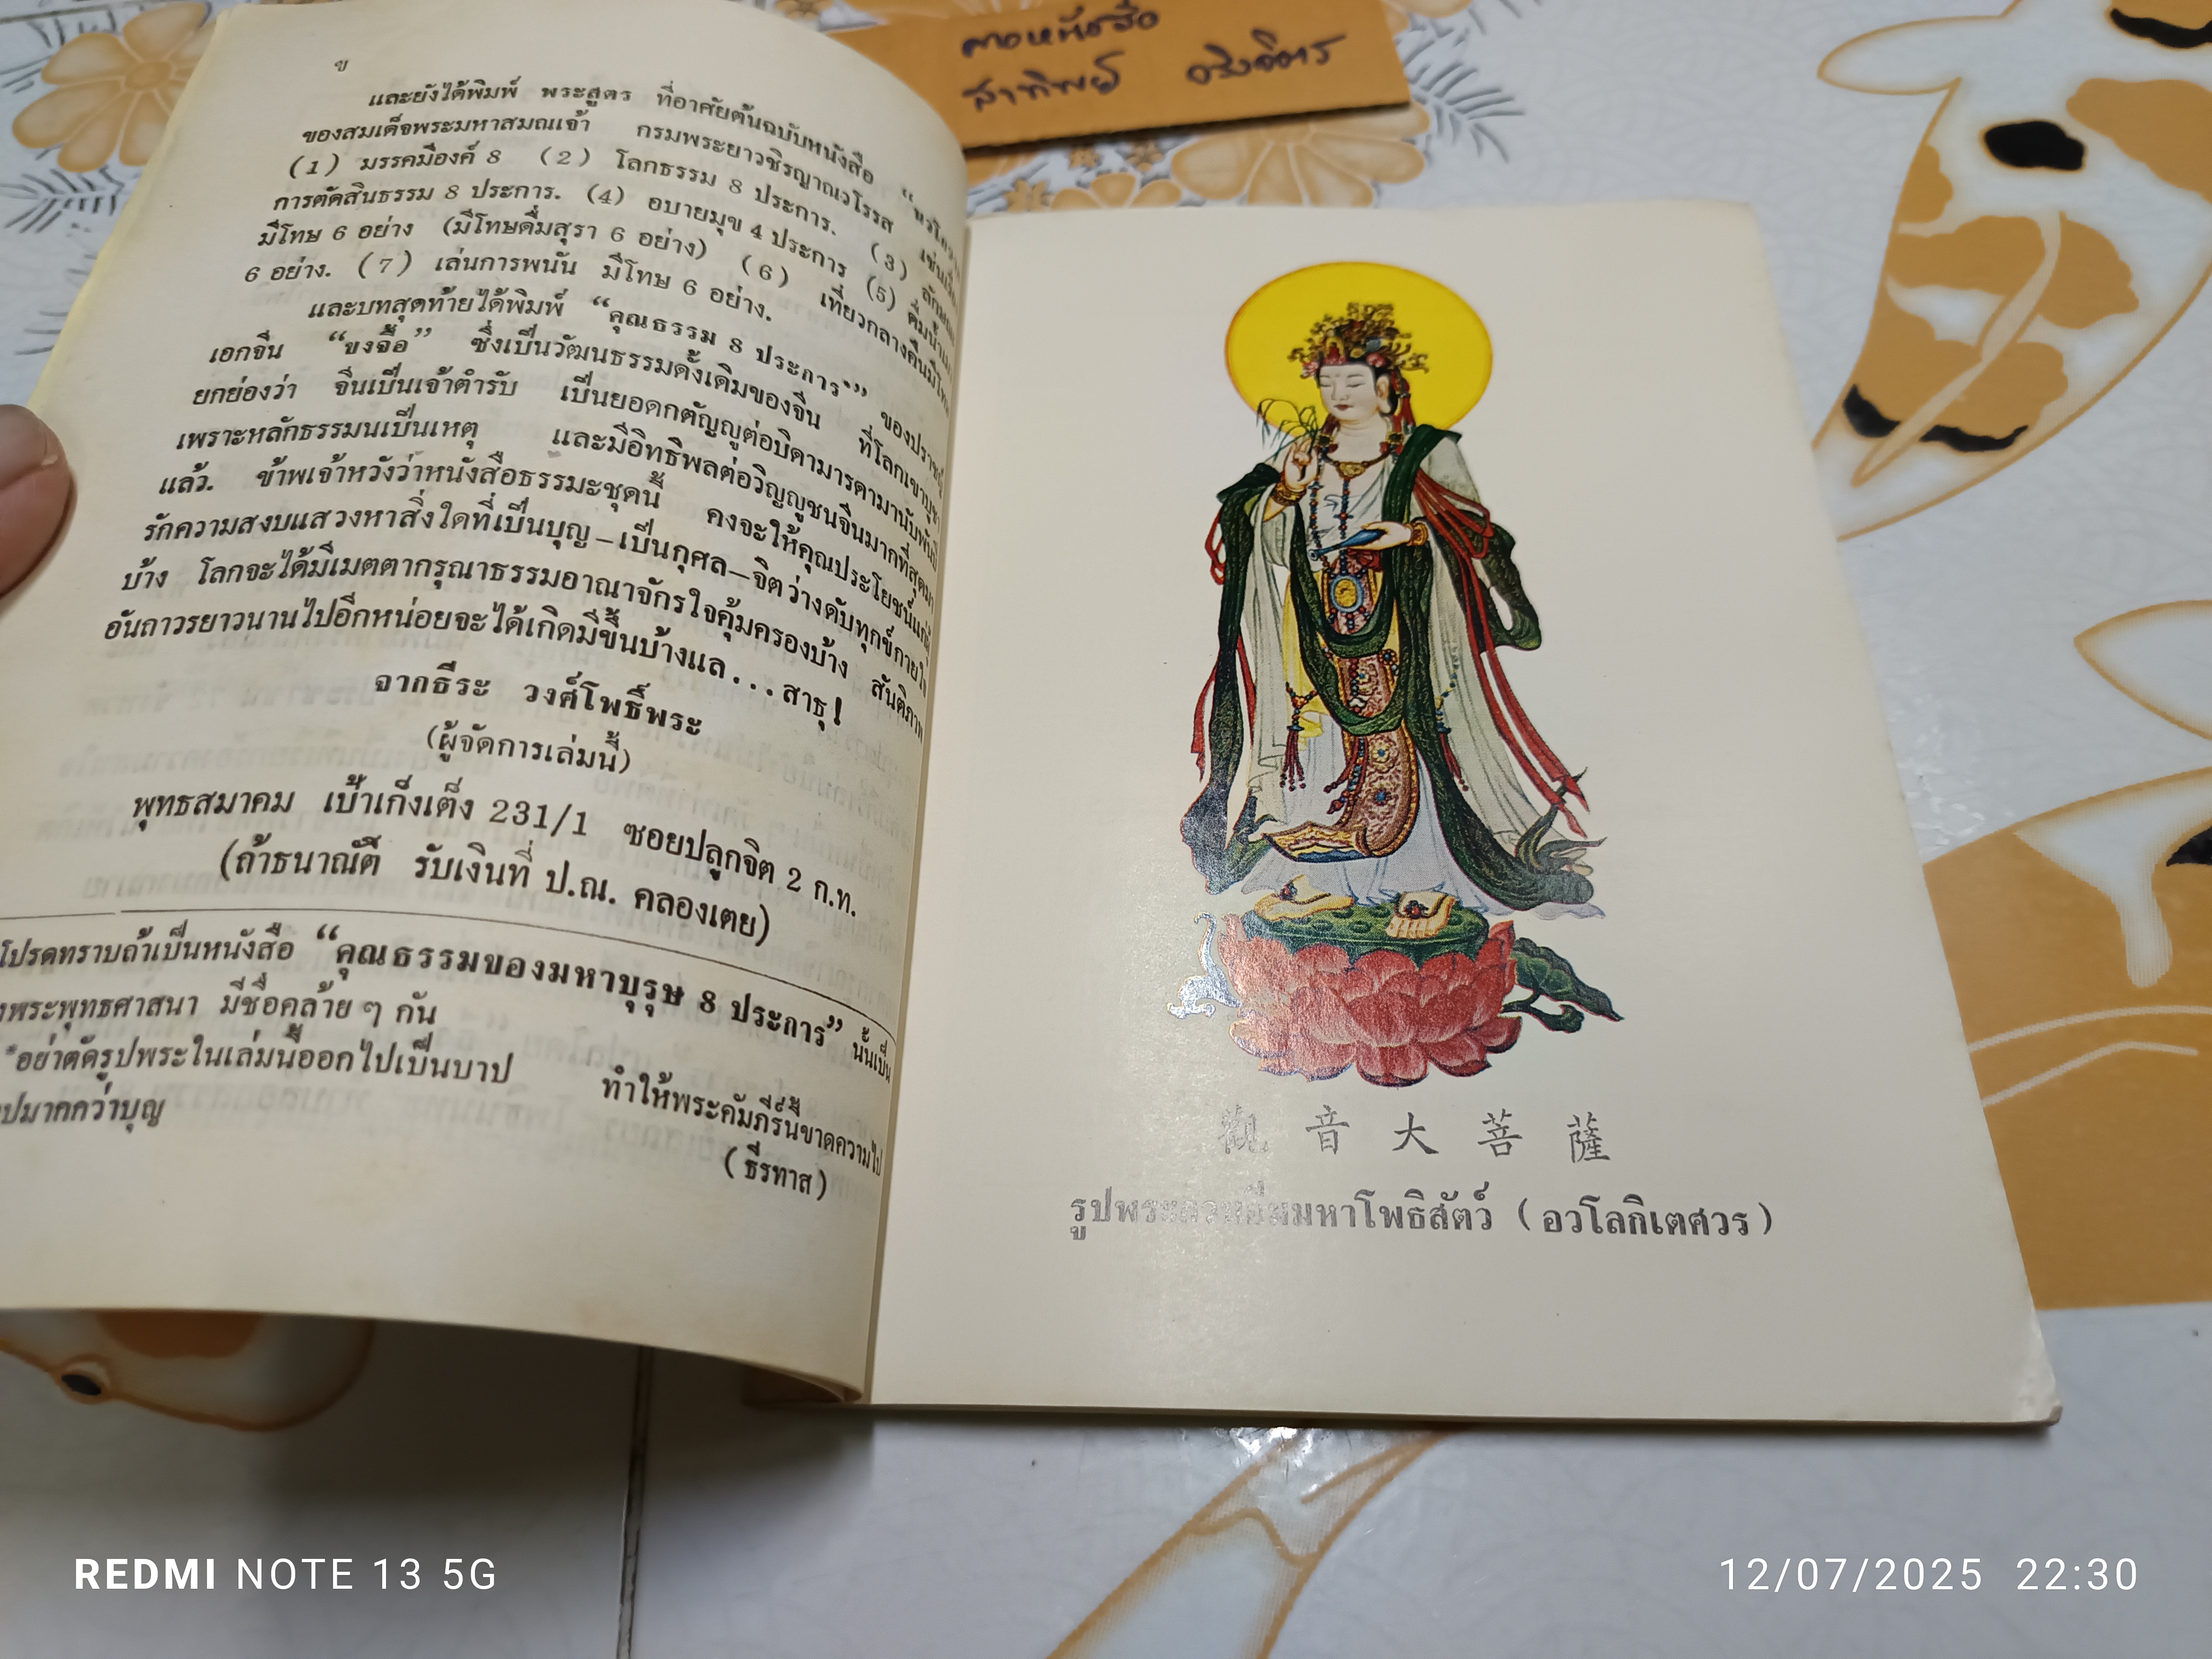 ข
และยังได้พิมพ์ พระสูตร ที่อาศัยต้นฉบับหนังสือ
ของสมเด็จพระมหาสมณเจ้า กรมพระยาวชิรญาณวโรรส เช่นเรื่อง
(1) มรรคมีองค์ 8 (2) โลกธรรม 8 ประการ. (3) ลักษณะ
การตัดสินธรรม 8 ประการ. (4) อบายมุข 4 ประการ (5) ดื่มน้ำเมา
มีโทษ 6 อย่าง (มีโทษดื่มสุรา 6 อย่าง) (6) เที่ยวกลางคืนมีโทษ
6 อย่าง. (7) เล่นการพนัน มีโทษ 6 อย่าง.
และบทสุดท้ายได้พิมพ์ “คุณธรรม 8 ประการ” ของปราชญ์
เอกจีน “ขงจื้อ” ซึ่งเป็นวัฒนธรรมดั้งเดิมของจีน ที่โลกเขาบูชา
ยกย่องว่า จีนเป็นเจ้าตำรับ เป็นยอดกตัญญูต่อบิดามารดามานับพันปี
เพราะหลักธรรมนเป็นเหตุ และมีอิทธิพลต่อวิญญูชนจีนมากที่สุดมา
แล้ว. ข้าพเจ้าหวังว่าหนังสือธรรมะชุดนี้ คงจะให้คุณประโยชน์แก่ผู้
รักความสงบแสวงหาสิ่งใดที่เป็นบุญ–เป็นกุศล–จิตว่างดับทุกข์กายใจ
บ้าง โลกจะได้มีเมตตากรุณาธรรมอาณาจักรใจคุ้มครองบ้าง สันติภาพ
อันถาวรยาวนานไปอีกหน่อยจะได้เกิดมีขึ้นบ้างแล...สาธุ!
จากธีระ วงศ์โพธิ์พระ
(ผู้จัดการเล่มนี้)
พุทธสมาคม เป้าเก็งเต็ง 231/1 ซอยปลูกจิต 2 ก.ท.
(ถ้าธนาณัติ รับเงินที่ ป.ณ. คลองเตย)
โปรดทราบถ้าเป็นหนังสือ “คุณธรรมของมหาบุรุษ 8 ประการ” นั้นเป็น
พระพุทธศาสนา มีชื่อคล้าย ๆ กัน
*อย่าตัดรูปพระในเล่มนี้ออกไปเป็นบาป ทำให้พระคัมภีร์นี้ขาดความไป
มากกว่าบุญ (ธีรทาส)
觀音大菩薩
รูปพระกวนอิมมหาโพธิสัตว์ (อวโลกิเตศวร)
REDMI NOTE 13 5G
12/07/2025 22:30